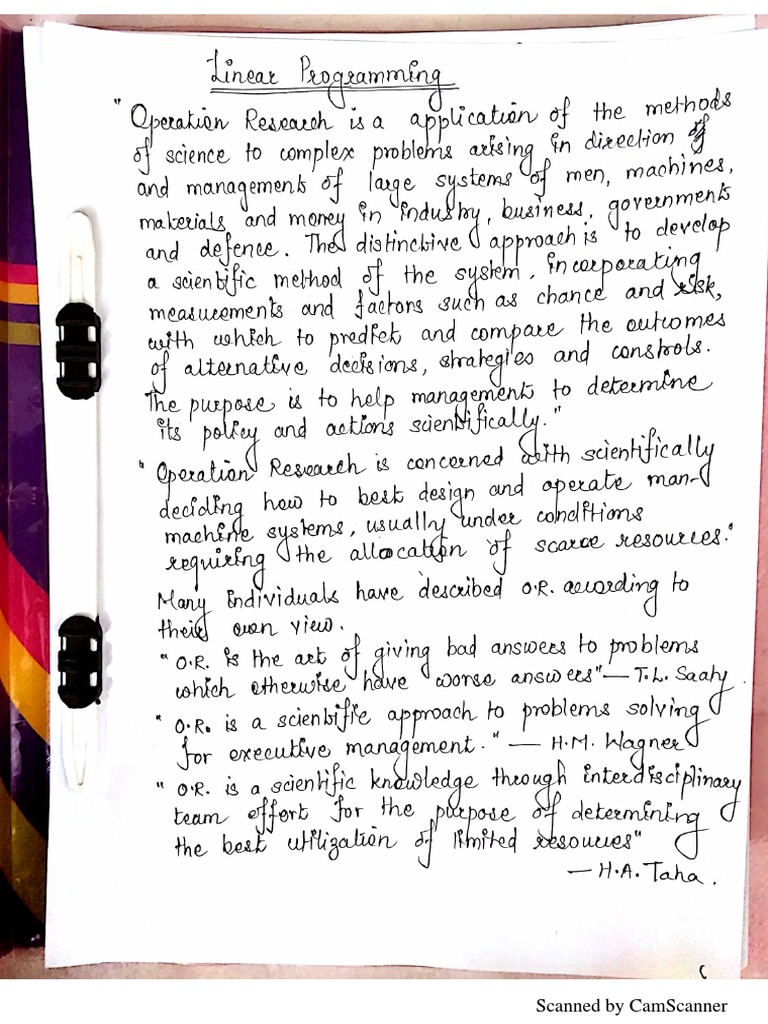 Linear Programming
"Operation Research is a application of the methods
of science to complex problems arising in direction of
and management of large systems of men, machines,
materials and money in industry, business, governments
and defence. The distinctive approach is to develop
a scientific method of the system, incorporating
measurements and factors such as chance and risk,
with which to predict and compare the outcomes
of alternative decisions, strategies and constrols.
The purpose is to help management to determine
its policy and actions scientifically."
"Operation Research is concerned with scientifically
deciding how to best design and operate man-
machine systems, usually under conditions
requiring the allocation of scarce resources."
Many individuals have described O.R. according to
their own view.
"O.R. is the art of giving bad answers to problems
which otherwise have worse answers" — T.L. Saaty.
"O.R. is a scientific approach to problems solving
for executive management." — H.M. Wagner
"O.R. is a scientific knowledge through interdisciplinary
team effort for the purpose of determining
the best utilization of limited resources"
— H.A. Taha.
Scanned by CamScanner